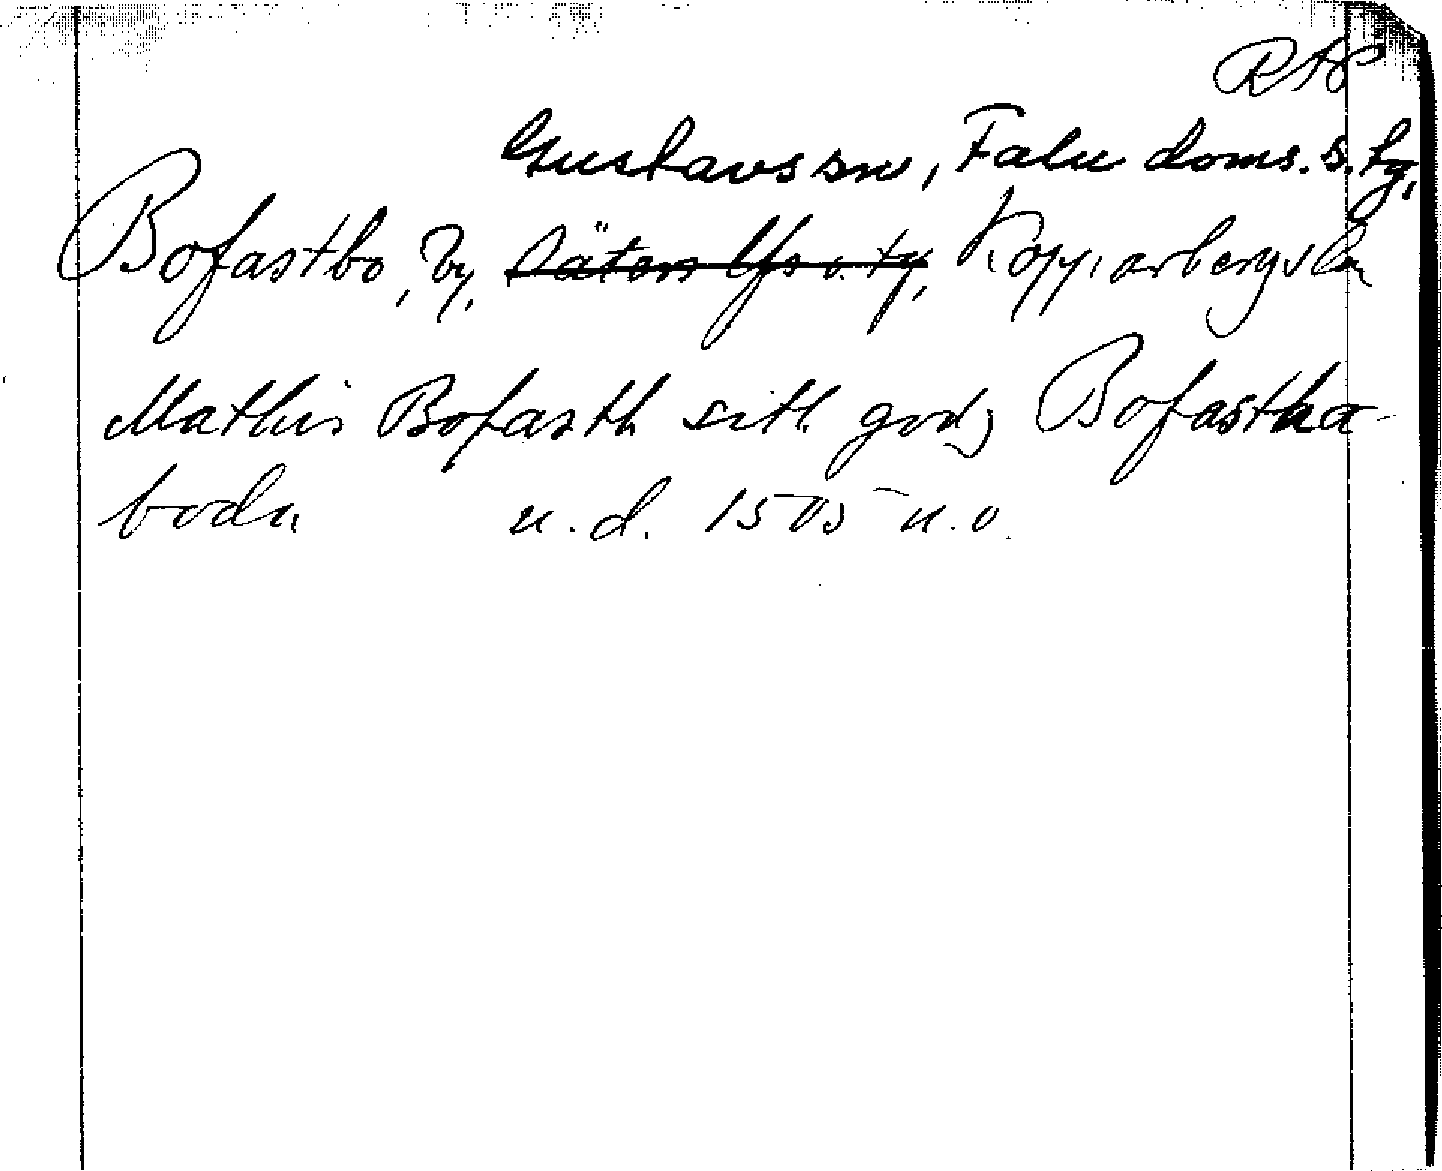 RAP
Gustavs sn, Falu doms. s. tg,
Bofastbo, By, Säters tg, Kopparbergs län
Mathis Bofasth sitt godz Bofastha-
boda u.d. 1505 u.o.